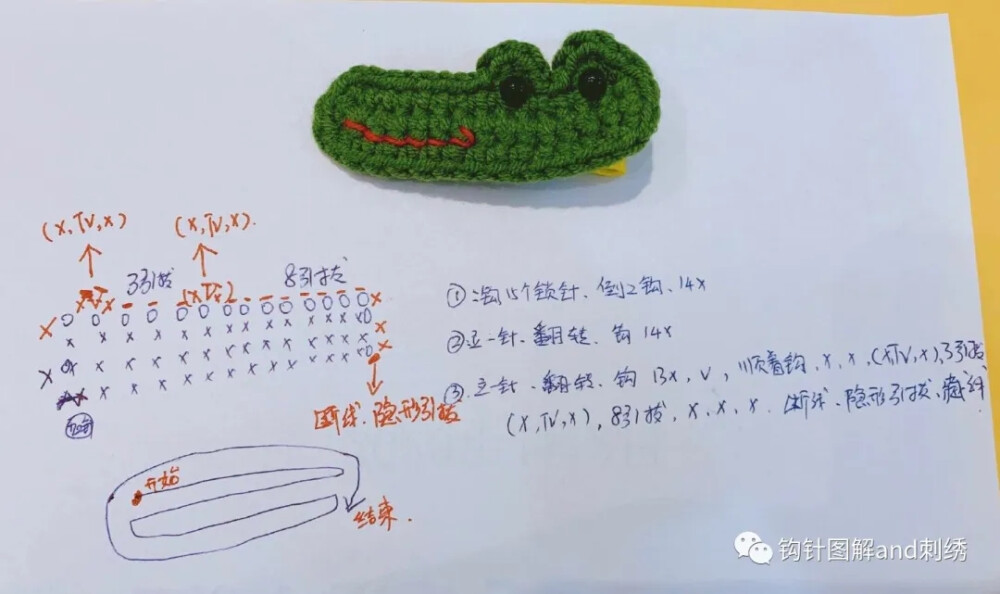 (x,TV,x) (x,TV,x).
3引拔 8引拔
(xTVx)
断线、隐形引拔
开始
结束.
①沟15个锁针、倒2钩、14x
②立一针、翻转、钩14x
③立一针、翻转、钩13x,V,顺着钩,x,x,(x,TV,x),3引拔
(x,TV,x),8引拔,x,x,x.断线、隐形引拔、藏线
钩针图解and刺绣